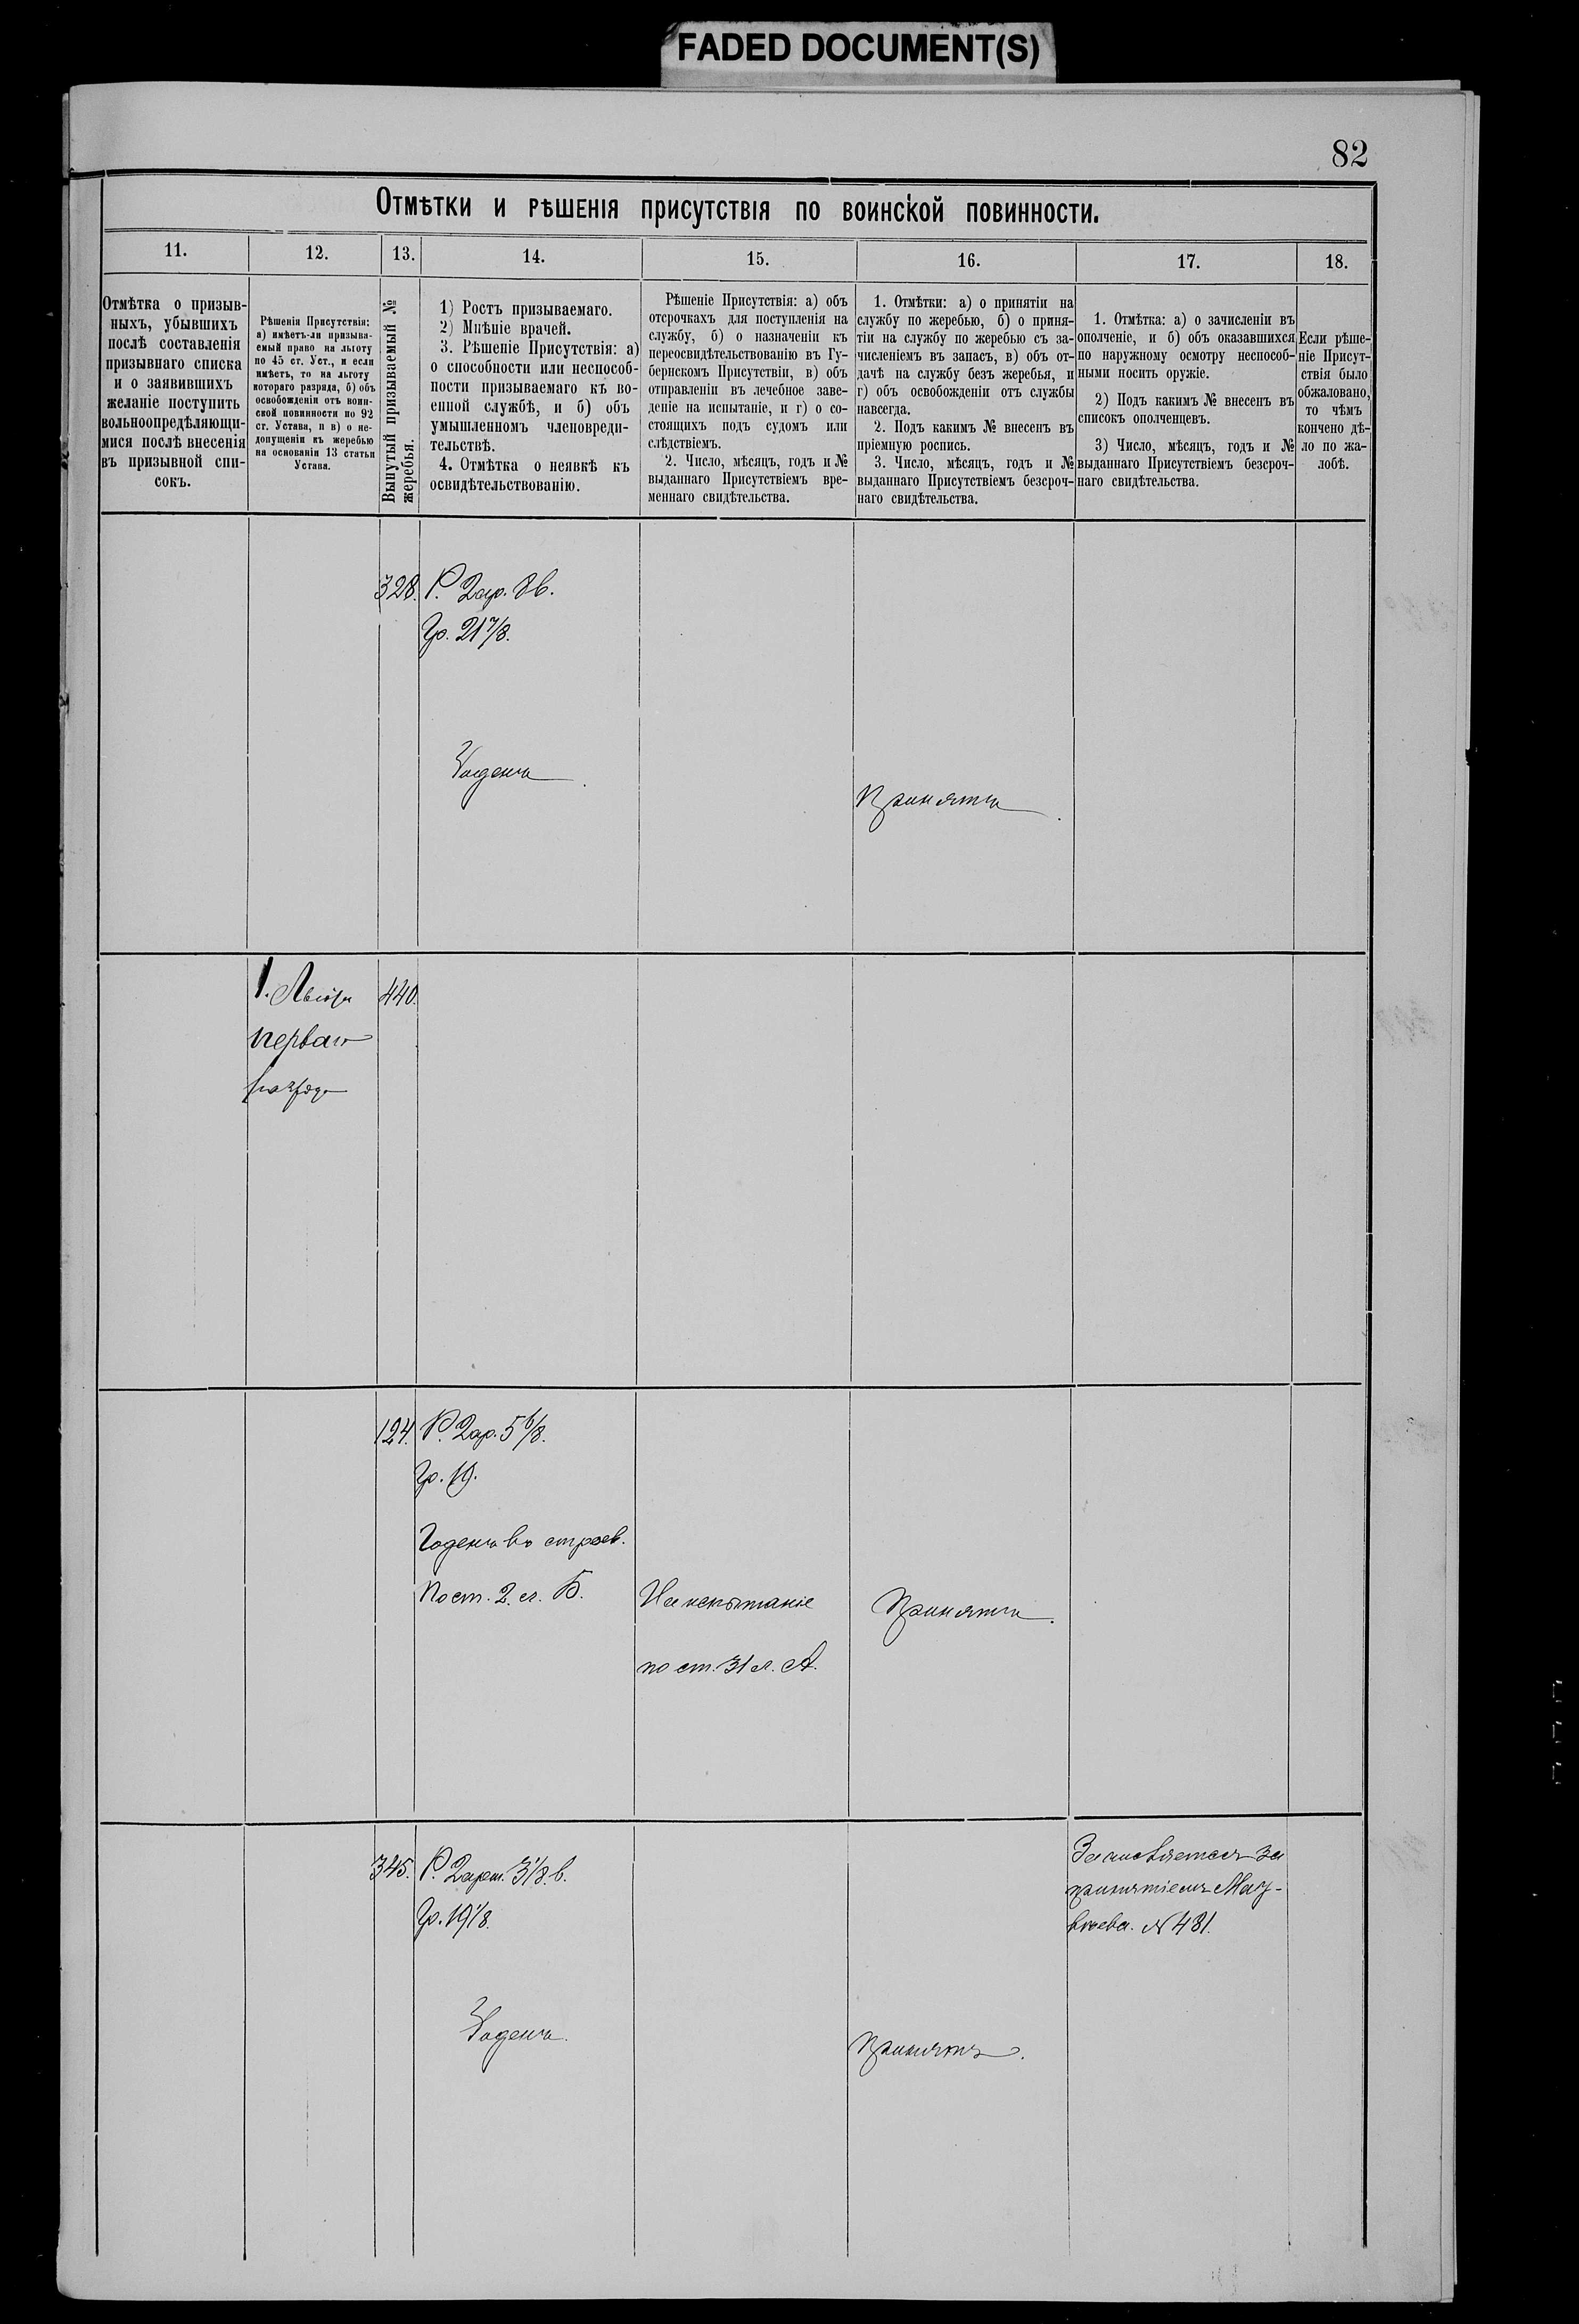 FADED DOCUMENT(S)
82
Отмѣтки и рѣшенія присутствія по воинской повинности.
11.
12.
13.
14.
15.
16.
17.
18.
Отмѣтка о призыв-
ныхъ, убывшихъ
послѣ составленія
призывнаго списка
и о заявившихъ
желаніе поступить
вольноопредѣляющи-
мися послѣ внесенія
въ призывной спи-
сокъ.
Рѣшенія Присутствія:
а) имѣетъ-ли призыва-
емый право на льготу
по 45 ст. Уст., и если
имѣетъ, то на льготу
котораго разряда, б) объ
освобожденіи отъ воин-
ской повинности по 92
ст. Устава, и в) о не-
допущеніи къ жеребью
на основаніи 13 статьи
Устава.
Вынутый призываемый №
жеребья.
1) Ростъ призываемаго.
2) Мнѣніе врачей.
3. Рѣшеніе Присутствія: а)
о способности или неспособ-
ности призываемаго къ во-
енной службѣ, и б) объ
умышленномъ членовреди-
тельствѣ.
4. Отмѣтка о неявкѣ къ
освидѣтельствованію.
Рѣшеніе Присутствія: а) объ
отсрочкахъ для поступленія на
службу, б) о назначеніи къ
переосвидѣтельствованію въ Гу-
бернскомъ Присутствіи, в) объ
отправленіи въ лечебное заве-
деніе на испытаніе, и г) о со-
стоящихъ подъ судомъ или
слѣдствіемъ.
2. Число, мѣсяцъ, годъ и №
выданнаго Присутствіемъ вре-
меннаго свидѣтельства.
1. Отмѣтки: а) о принятіи на
службу по жеребью, б) о приня-
тіи на службу по жеребью съ за-
численіемъ въ запасъ, в) объ от-
дачѣ на службу безъ жеребья, и
г) объ освобожденіи отъ службы
навсегда.
2. Подъ какимъ № внесенъ въ
пріемную роспись.
3. Число, мѣсяцъ, годъ и №
выданнаго Присутствіемъ безсроч-
наго свидѣтельства.
1. Отмѣтка: а) о зачисленіи въ
ополченіе, и б) объ оказавшихся
по наружному осмотру неспособ-
ными носить оружіе.
2) Подъ какимъ № внесенъ въ
списокъ ополченцевъ.
3) Число, мѣсяцъ, годъ и №
выданнаго Присутствіемъ безсроч-
наго свидѣтельства.
Если рѣше-
ніе Присут-
ствія было
обжаловано,
то чѣмъ
кончено дѣ-
ло по жа-
лобѣ.
328.
Р. 2 ар. 8 в.
Гр. 21 7/8.
Годенъ.
Принятъ.
1. Льгота
перваго
разряда
440.
124.
Р. 2 ар. 5 6/8.
Гр. 19.
Годенъ въ строев.
По ст. 2. л. Б.
На испытаніе
по ст. 31 л. А.
Принятъ.
345.
Р. 2 арш. 3 1/8. в.
Гр. 19 1/8.
Годенъ.
Принятъ.
за
принятіемъ
№ 481.